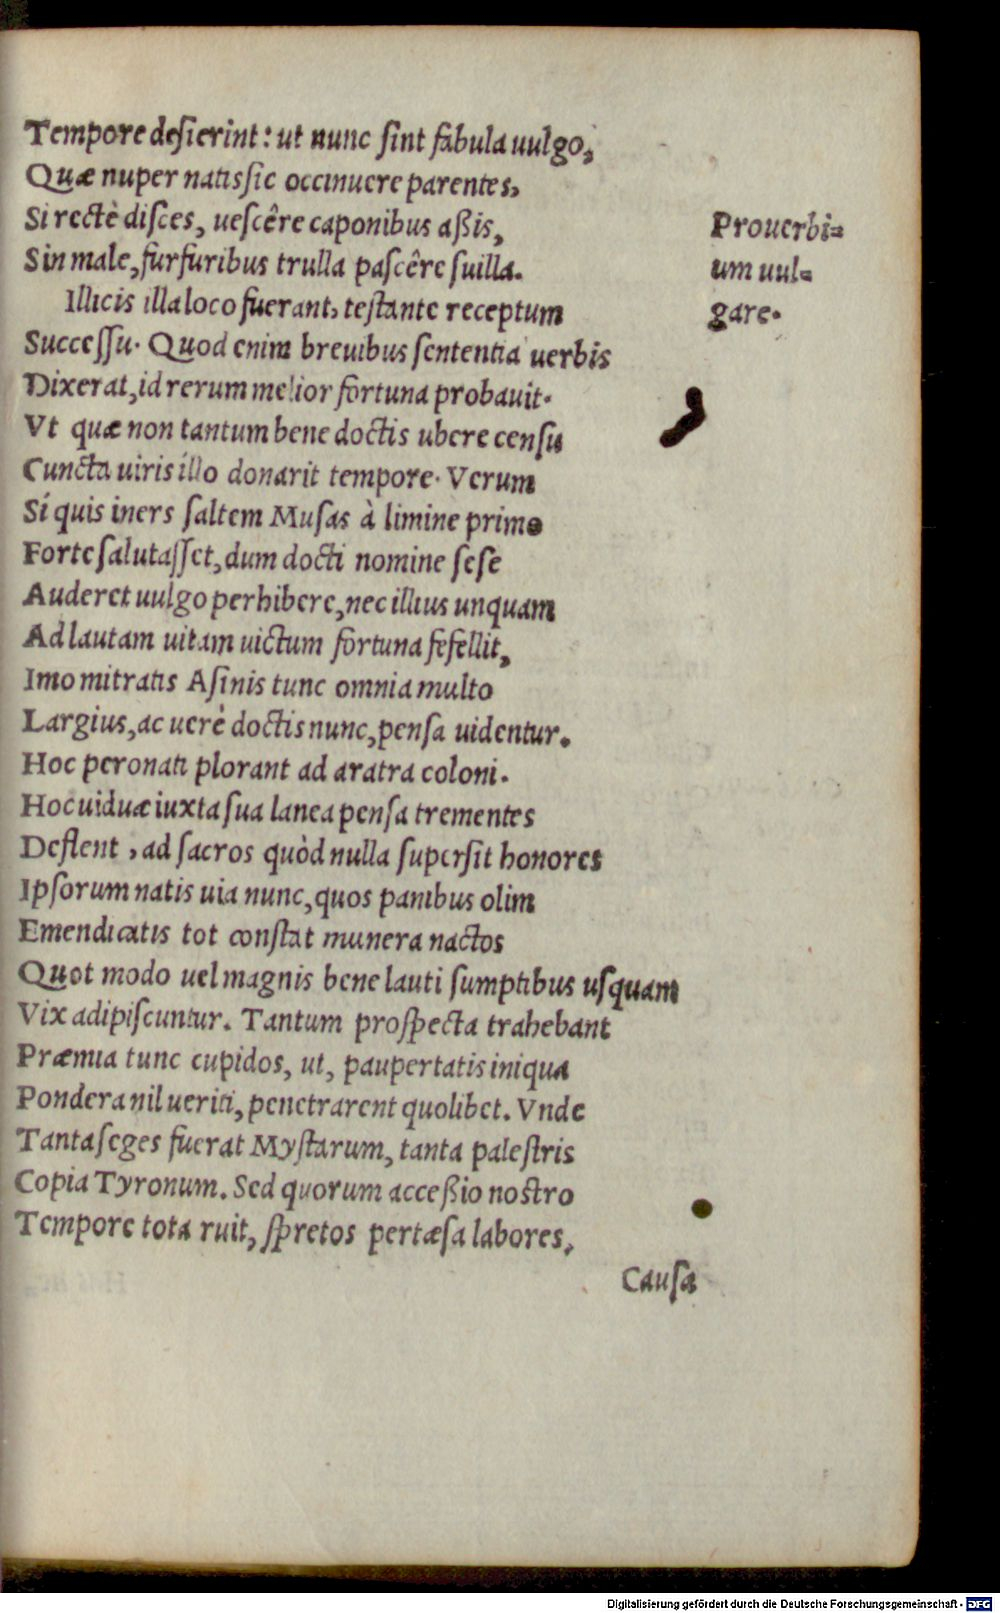 Tempore desierint: ut nunc sint fabula uulgo,
Quæ nuper natis sic occinuere parentes,
Si rectè disces, uescêre caponibus aßis,
Sin male, furfuribus trulla pascêre suilla.
Illicis illa loco fuerant, testante receptum
Successu. Quod enim breuibus sententia uerbis
Dixerat, id rerum melior fortuna probauit.
Vt quæ non tantum bene doctis ubere censu
Cuncta uiris illo donarit tempore. Verum
Si quis iners saltem Musas à limine primo
Forte salutasset, dum docti nomine sese
Auderet uulgo perhibere, nec illius unquam
Ad lautam uitam uictum fortuna fefellit,
Imo mitratis Asinis tunc omnia multo
Largius, ac uerè doctis nunc, pensa uidentur.
Hoc peronati plorant ad aratra coloni.
Hoc uiduæ iuxta sua lanea pensa trementes
Deflent, ad sacros quòd nulla supersit honores
Ipsorum natis uia nunc, quos panibus olim
Emendicatis tot constat munera nactos
Quot modo uel magnis bene lauti sumptibus usquam
Vix adipiscuntur. Tantum prospecta trahebant
Præmia tunc cupidos, ut, paupertatis iniqua
Pondera nil ueriti, penetrarent quolibet. Vnde
Tanta seges fuerat Mystarum, tanta palestris
Copia Tyronum. Sed quorum acceßio nostro
Tempore tota ruit, spretos pertæsa labores,
Causa
Prouerbi=
um uul=
gare.
Digitalisierung gefördert durch die Deutsche Forschungsgemeinschaft - DFG